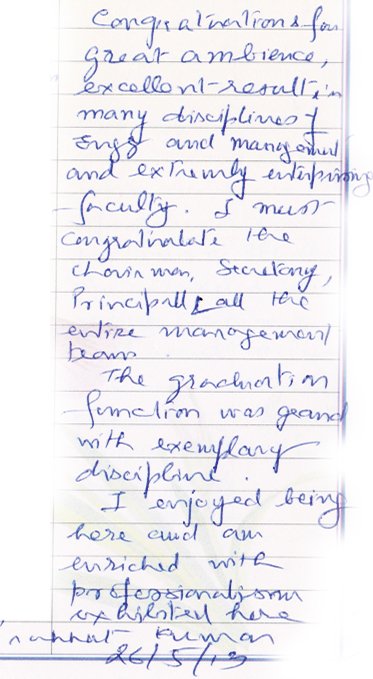 Congratulations for
great ambience,
excellent result in
many disciplines of
Engg and management
and extremly enterprising
faculty. I must
congratulate the
chairman, Secretary,
Principall & all the
entire management
team.
The graduation
function was grand
with exemplary
discipline.
I enjoyed being
here and am
enriched with
professionalism
exhibited here
Kumar
26/5/13